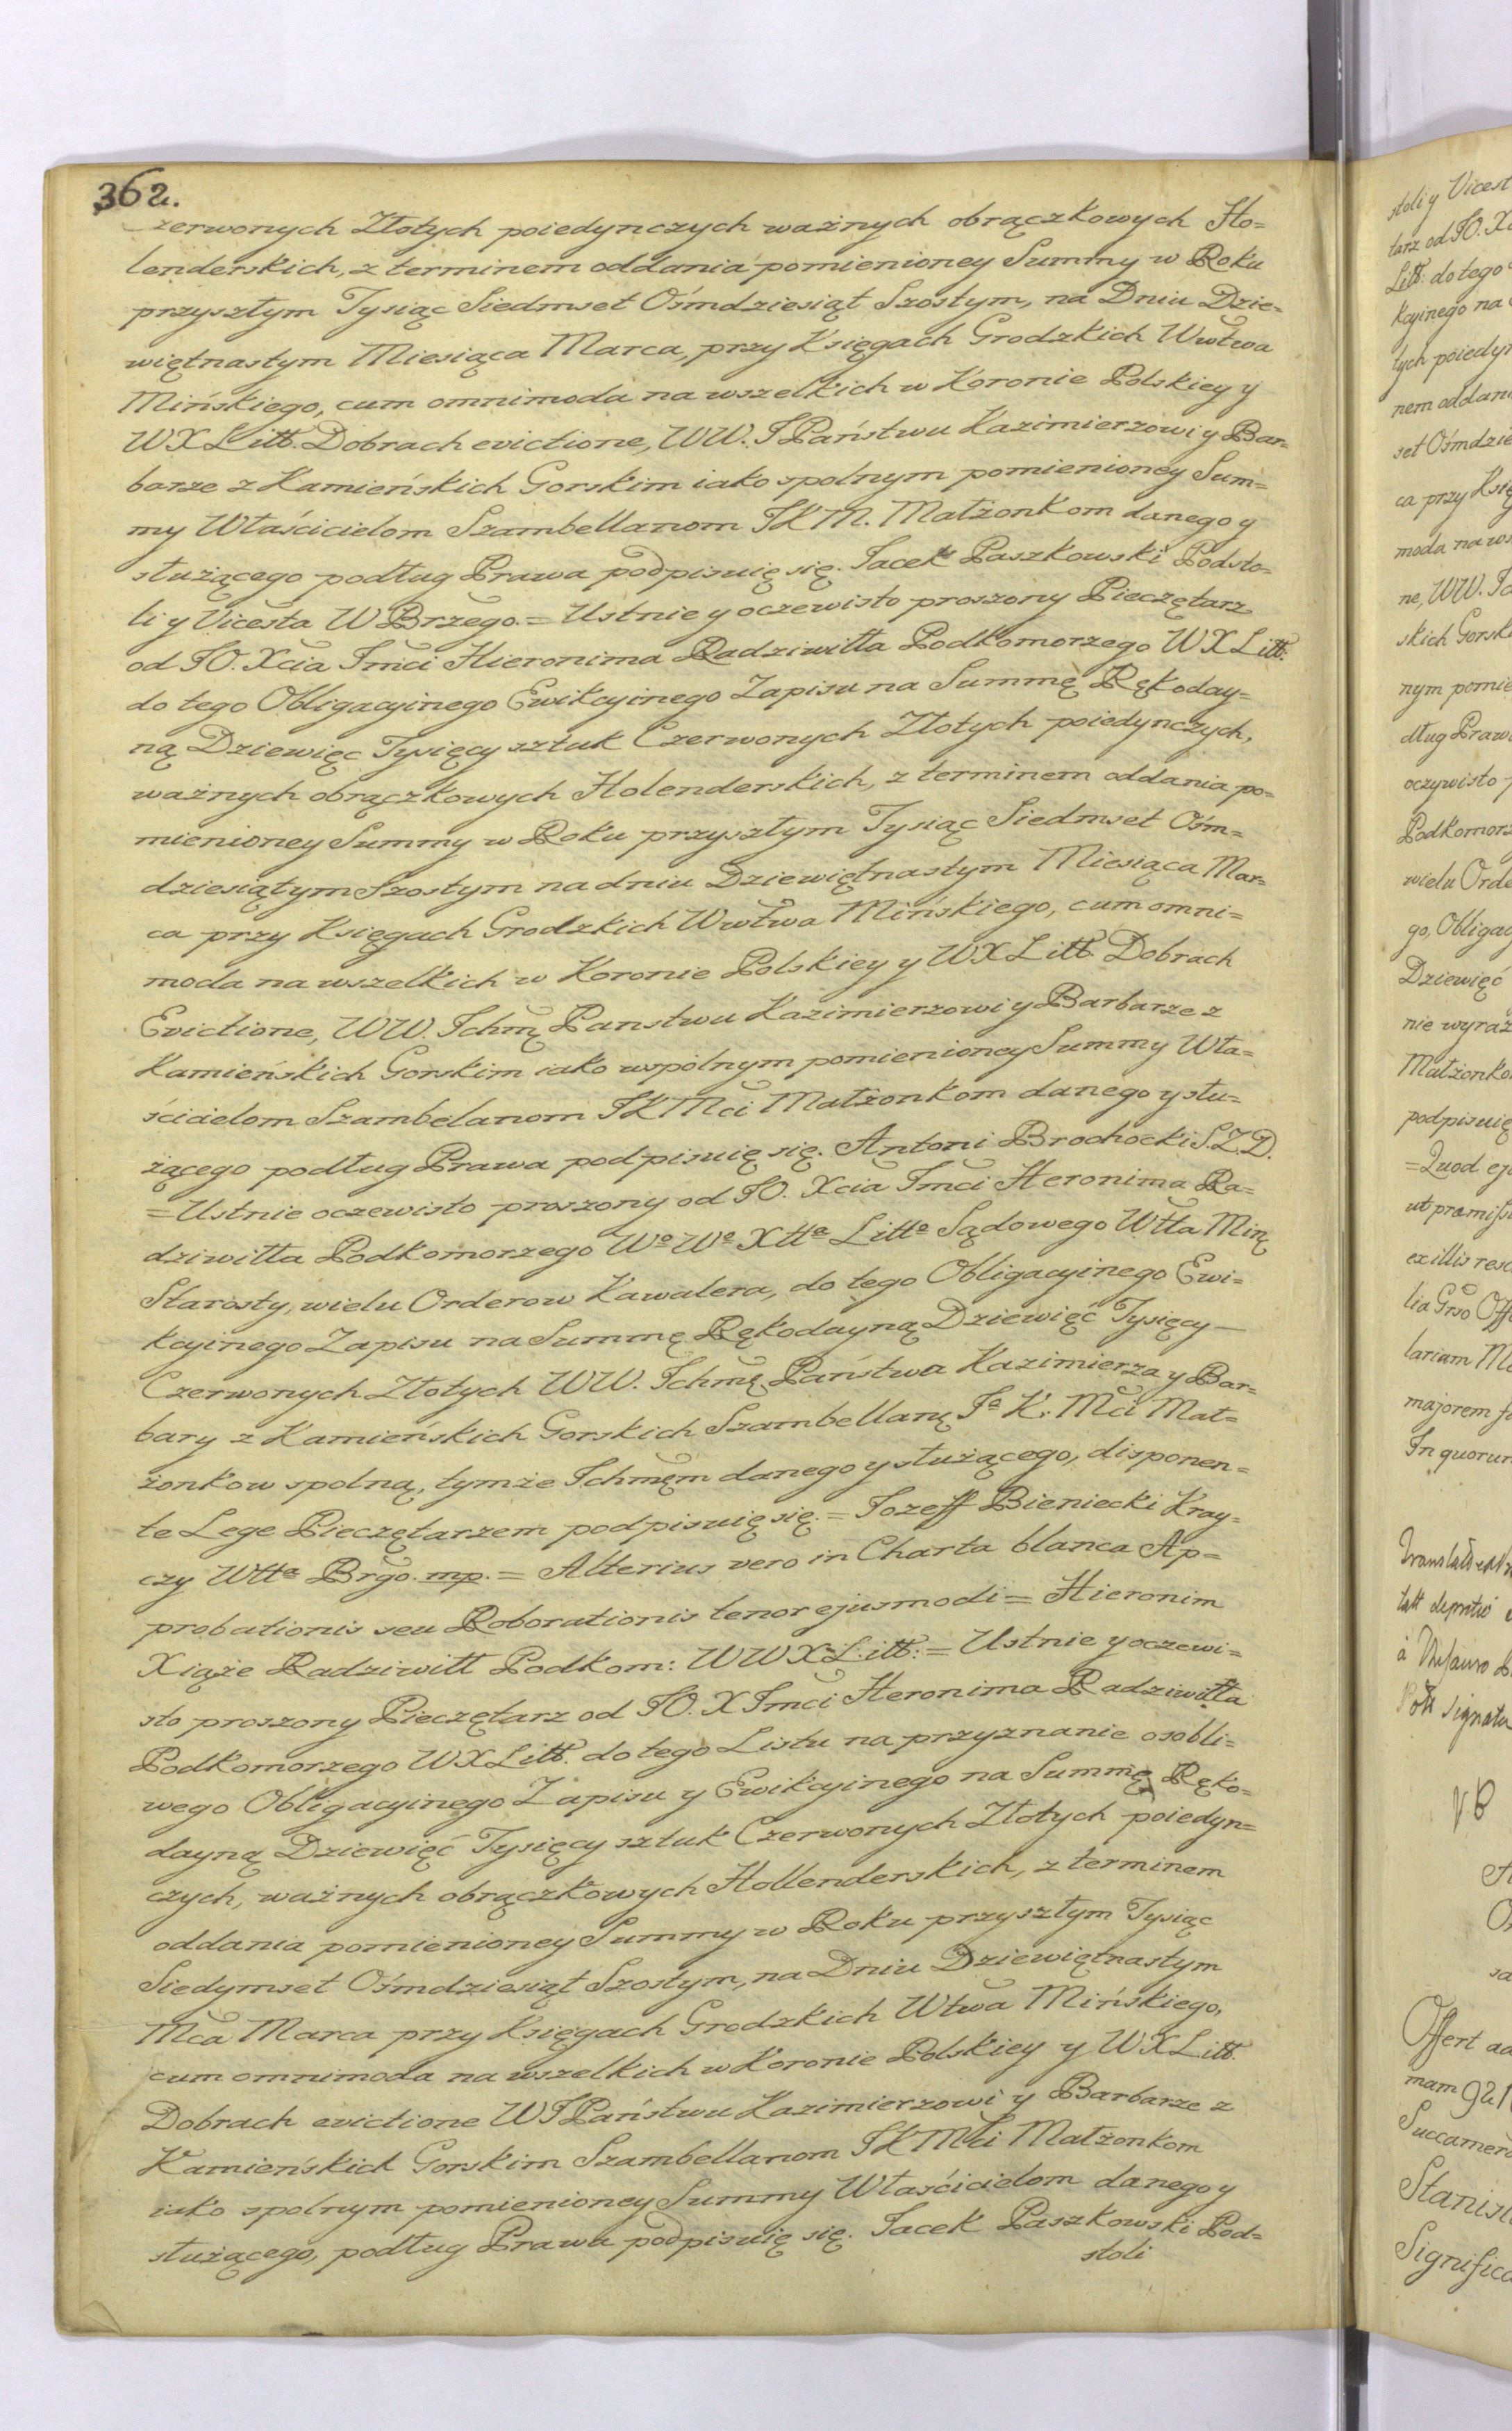 362.
zerwonych Złotych poiedynczych ważnych obrączkowych Ho=
lenderskich, z terminem oddania pomienioney Summy w Roku
przyszłym Tysiąc Siedmset Ośmdziesiąt Szostym, na Dniu Dzie=
więtnastym Miesiąca Marca, przy Księgach Grodzkich Wwłwa
Mińskiego, cum omnimoda na wszelkich w Koronie Polskiey y
WXLitt. Dobrach evictione, WW. JPaństwu Kazimierzowi y Bar=
barze z Kamieńskich Gorskim iako spolnym pomienioney Sum=
my Właścicielom Szambellanom JKM. Małżonkom danego y
służącego podług Prawa podpisuię się. Jacek Paszkowski Podsto=
li y Vicesta W Brzego. = Ustnie y oczewisto proszony Pieczętarz
od JO. Xcia Jmci Hieronima Radziwiłła Podkomorzego WXLitt.
do tego Obligacyinego Ewikcyinego Zapisu na Summę Rękoday=
ną Dziewięc Tysięcy sztuk Czerwonych Złotych poiedynczych,
ważnych obrączkowych Holenderskich, z terminem oddania po=
mienioney Summy w Roku przyszłym Tysiąc Siedmset Ośm=
dziesiątym Szostym na dniu Dziewiętnastym Miesiąca Mar=
ca przy Księgach Grodzkich Wwłwa Mińskiego, cum omni=
moda na wszelkich w Koronie Polskiey y WXLitt Dobrach
Evictione, WW. Ichmę Panstwu Kazimierzowi y Barbarze z
Kamieńskich Gorskim iako wspólnym pomienioney Summy Wła=
ścicielom Szambelanom JKMci Małżonkom danego y słu=
żącego podług Prawa podpisuię się. Antoni Brochocki S.Z.D.
= Ustnie oczewisto proszony od JO. Xcia Jmci Heronima Ra=
dziwiłła Podkomorzego Wo Wo Xtta Litto Sądowego Wtta Minę
Starosty, wielu Orderow Kawalera, do tego Obligacyinego Ewi=
kcyinego Zapisu na Summę Rękodayną Dziewięć Tysięcy —
Czerwonych Złotych WW. Ichmę Państwa Kazimierza y Bar=
bary z Kamieńskich Gorskich Szambellanę Ja K: Mci Mał=
żonkow spolną, tymże Ichmęm danego y służącego, disponen=
te Lege Pieczętarzem podpisuię się. = Jozeff Bieniecki Kray=
czy Wtta Brgo. mp. = Alterius vero in Charta blanca Ap=
probationis seu Roborationis tenor ejusmodi = Hieronim
Xiąże Radziwiłł Podkom: WWXL:itt: = Ustnie y oczewi=
sto proszony Pieczętarz od JO. X Jmci Heronima Radziwiłła
Podkomorzego WXLitt. do tego Listu na przyznanie osobli=
wego Obligacyinego Zapisu y Ewikcyinego na Summę Ręko=
dayną Dziewięć Tysięcy sztuk Czerwonych Złotych poiedyn=
czych, ważnych obrączkowych Hollenderskich, z terminem
oddania pomienioney Summy w Roku przyszłym Tysiąc
Siedymset Ośmdziesiąt Szostym, na Dniu Dziewiętnastym
Mca Marca przy Księgach Grodzkich Wtwa Mińskiego,
cum omnimoda na wszelkich w Koronie Polskiey y WXLitt.
Dobrach evictione WJPaństwu Kazimierzowi y Barbarze z
Kamieńskich Gorskim Szambellanom JKMci Małżonkom
iako spolnym pomienioney Summy Właścicielom danego y
służącego, podług Prawa podpisuię się. Jacek Paszkowski Pod=
stoli
stoli y Vicest
tarz od JO. X
Litt: do tego
kcyinego na
tych poiedyn
nem oddani
set Ośmdzie
ca przy Księ
moda na ws
ne, WW. Ic
skich Gorsk
nym pomie
dług Prawa
oczywisto
Podkomorz
wielu Orde
go, Obligac
Dziewięć
nie wyraż
Małżonko
podpisuię
=Quod ej
ut præmiss
ex illis res
lia Grso Off
larium M
majorem f
In quorum
Offert ad
mam 921
Succamer
Stanisl
Significa